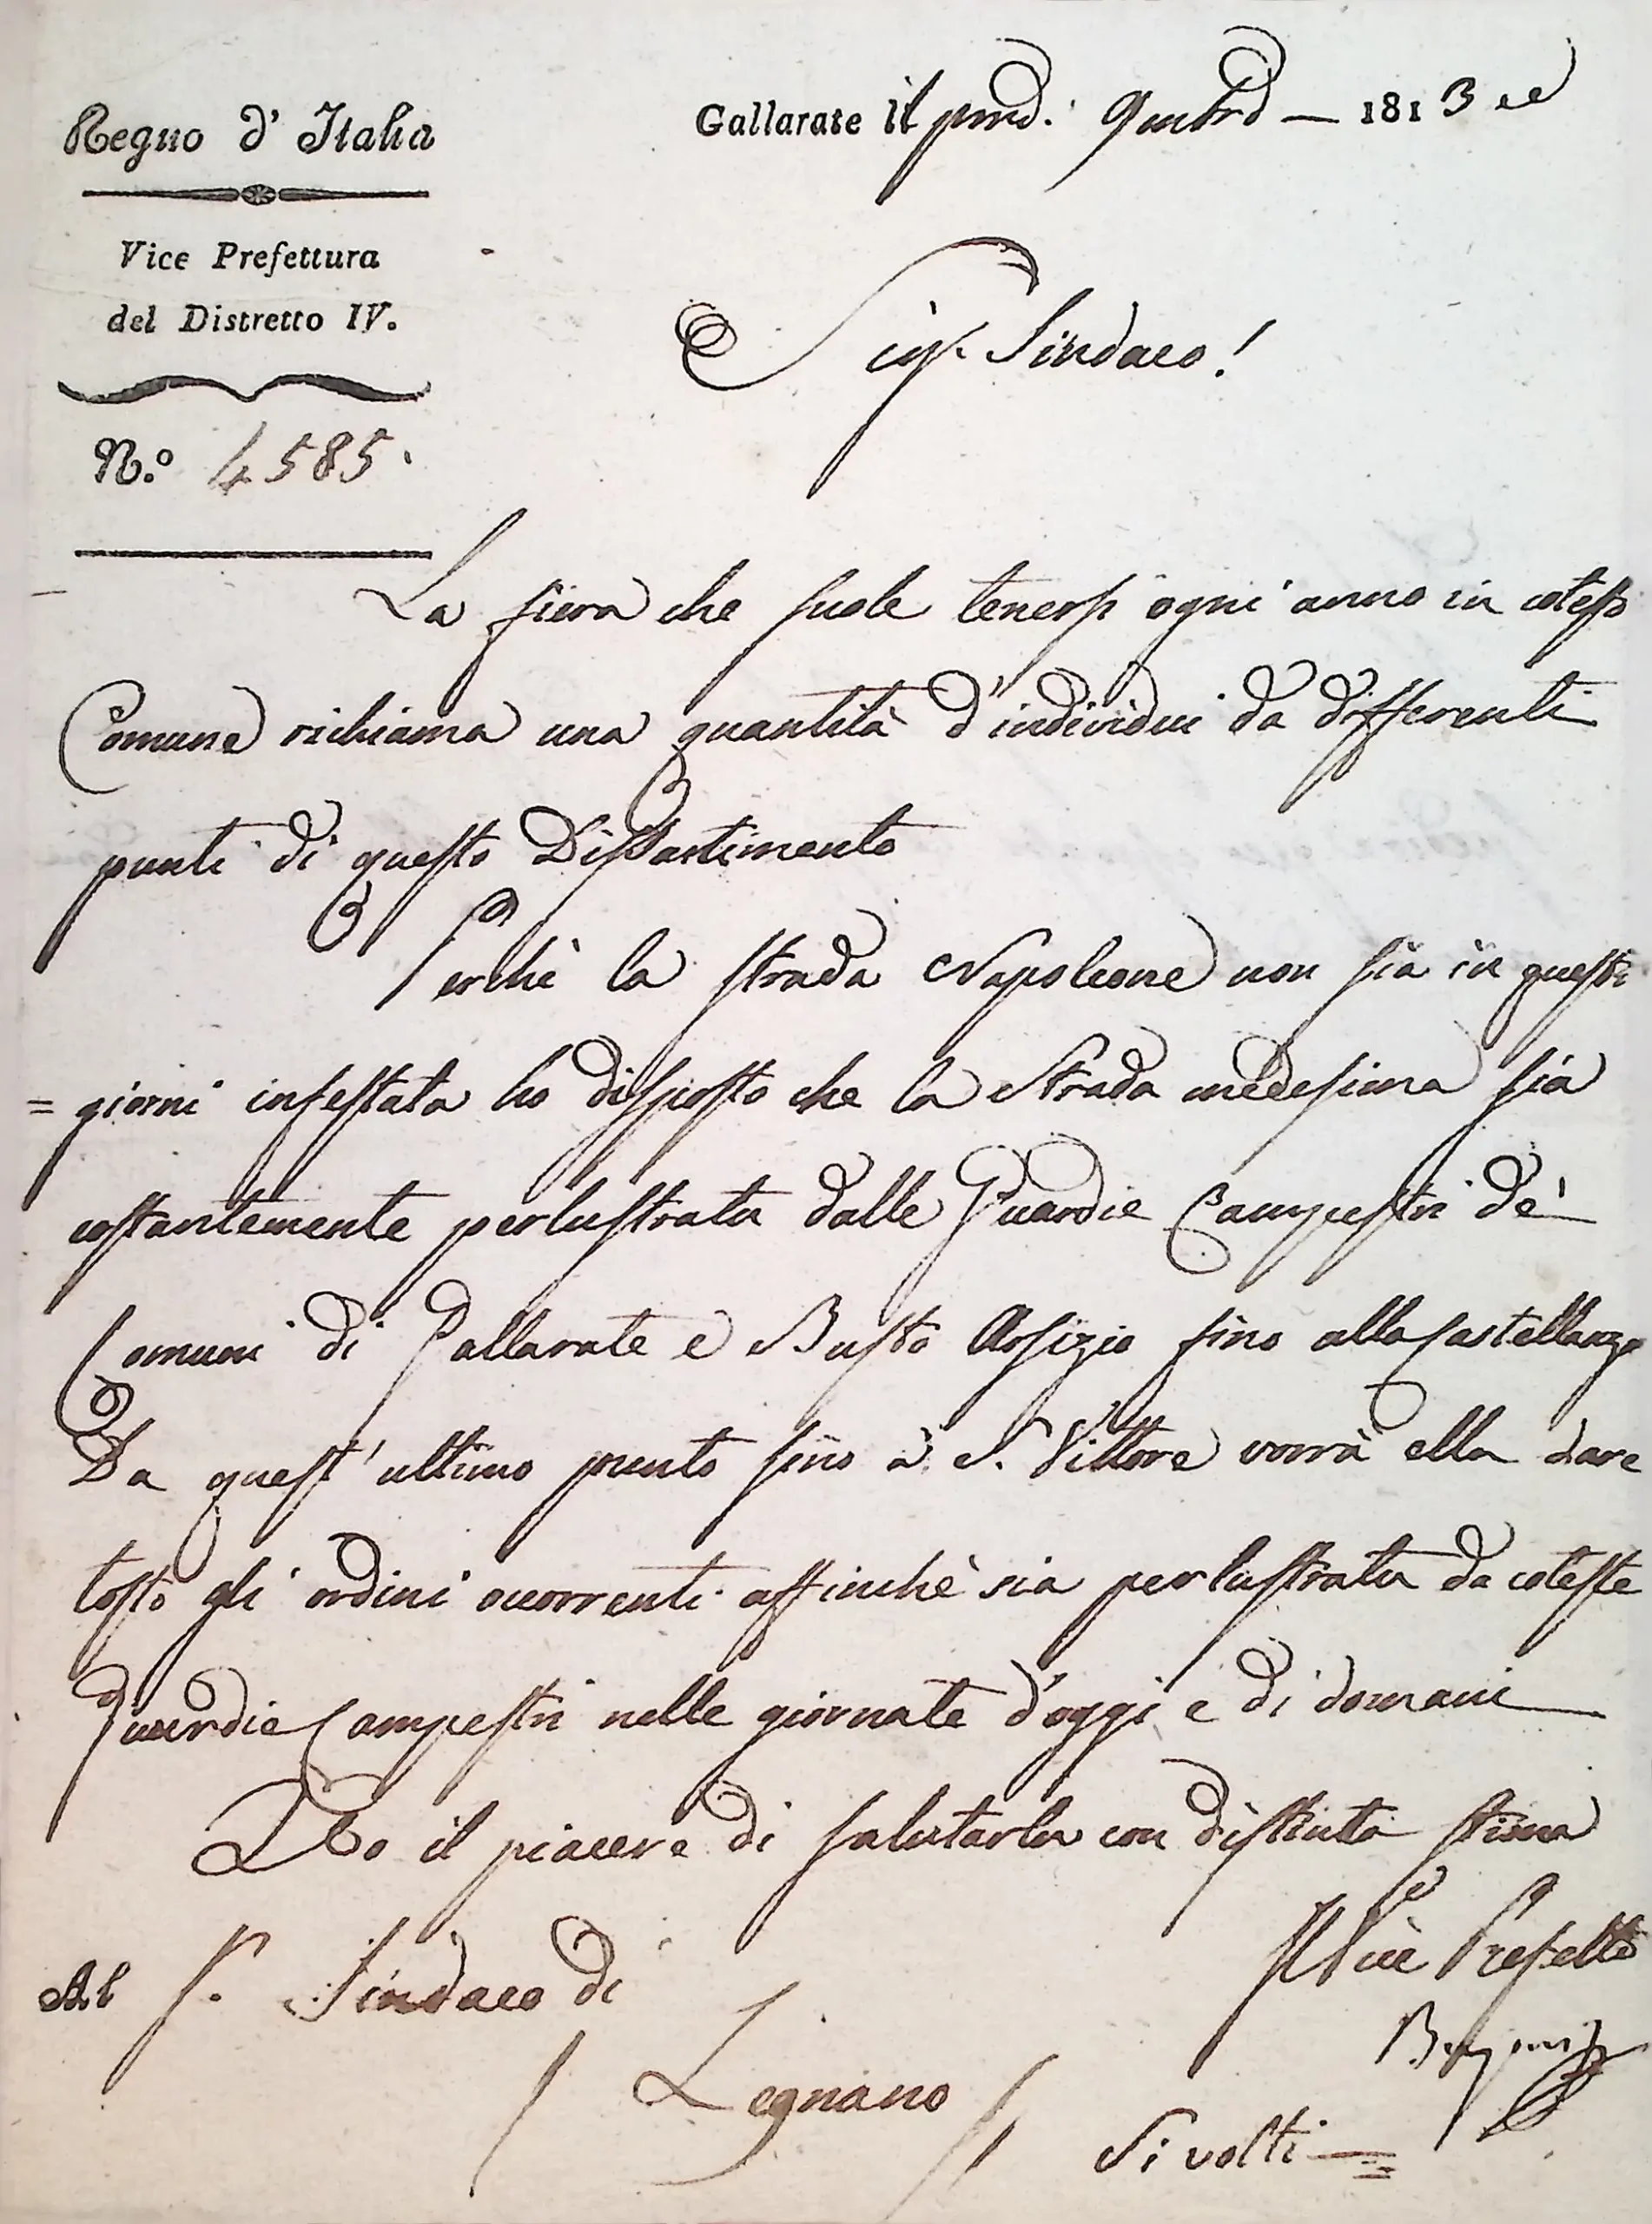 Regno d' Italia
Vice Prefettura
del Distretto IV.
N.º 4585.
Gallarate il pmo. 9mbre — 1813
Sig.r Sindaco!
La fiera che suole tenersi ogni anno in cotesto
Comune richiama una quantità d'individui da differenti
punti di questo Dipartimento
Perchè la strada Napoleone non sia in questi
= giorni infestata ho disposto che la Strada medesima sia
costantemente perlustrata dalle Guardie Campestri de'
Comuni di Gallarate e Busto Arsizio fino alla Castellanza
Da quest'ultimo punto sino a S. Vittore vorrà ella dare
tosto gli ordini occorrenti affinchè sia perlustrata da coteste
Guardie Campestri nelle giornate d'oggi e di domani
Ho il piacere di salutarla con distinta stima
Il Vice Prefetto
Al S.r Sindaco di
Legnano
Si volti